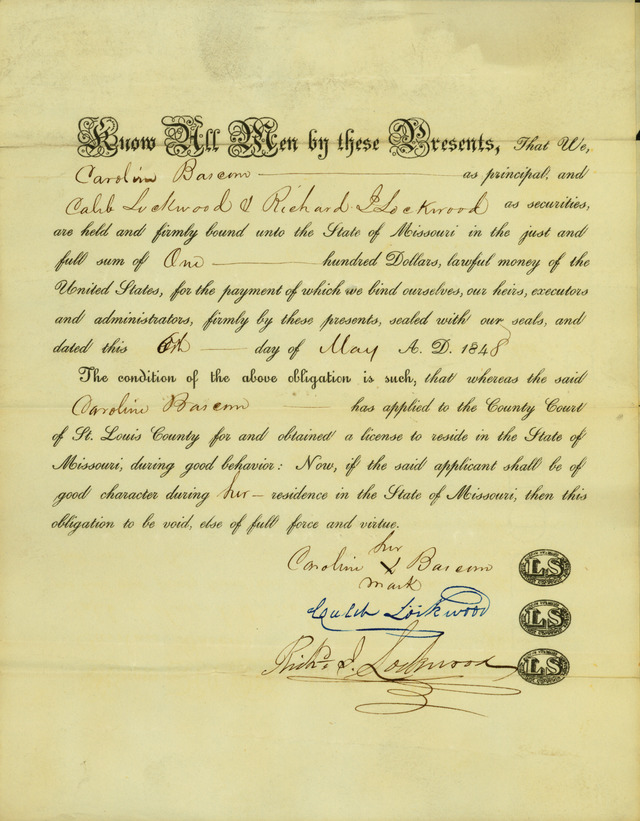 Know All Men by these Presents, That We,
Caroline Bascom as principal, and
Caleb Lockwood & Richard J Lockwood as securities,
are held and firmly bound unto the State of Missouri in the just and
full sum of One hundred Dollars, lawful money of the
United States, for the payment of which we bind ourselves, our heirs, executors
and administrators, firmly by these presents, sealed with our seals, and
dated this day of May A. D. 1848
The condition of the above obligation is such, that whereas the said
Caroline Bascom has applied to the County Court
of St. Louis County for and obtained a license to reside in the State of
Missouri, during good behavior: Now, if the said applicant shall be of
good character during her residence in the State of Missouri, then this
obligation to be void, else of full force and virtue.
her
Caroline X Bascom LS
mark
Caleb Lockwood LS
Richd. J. Lockwood LS